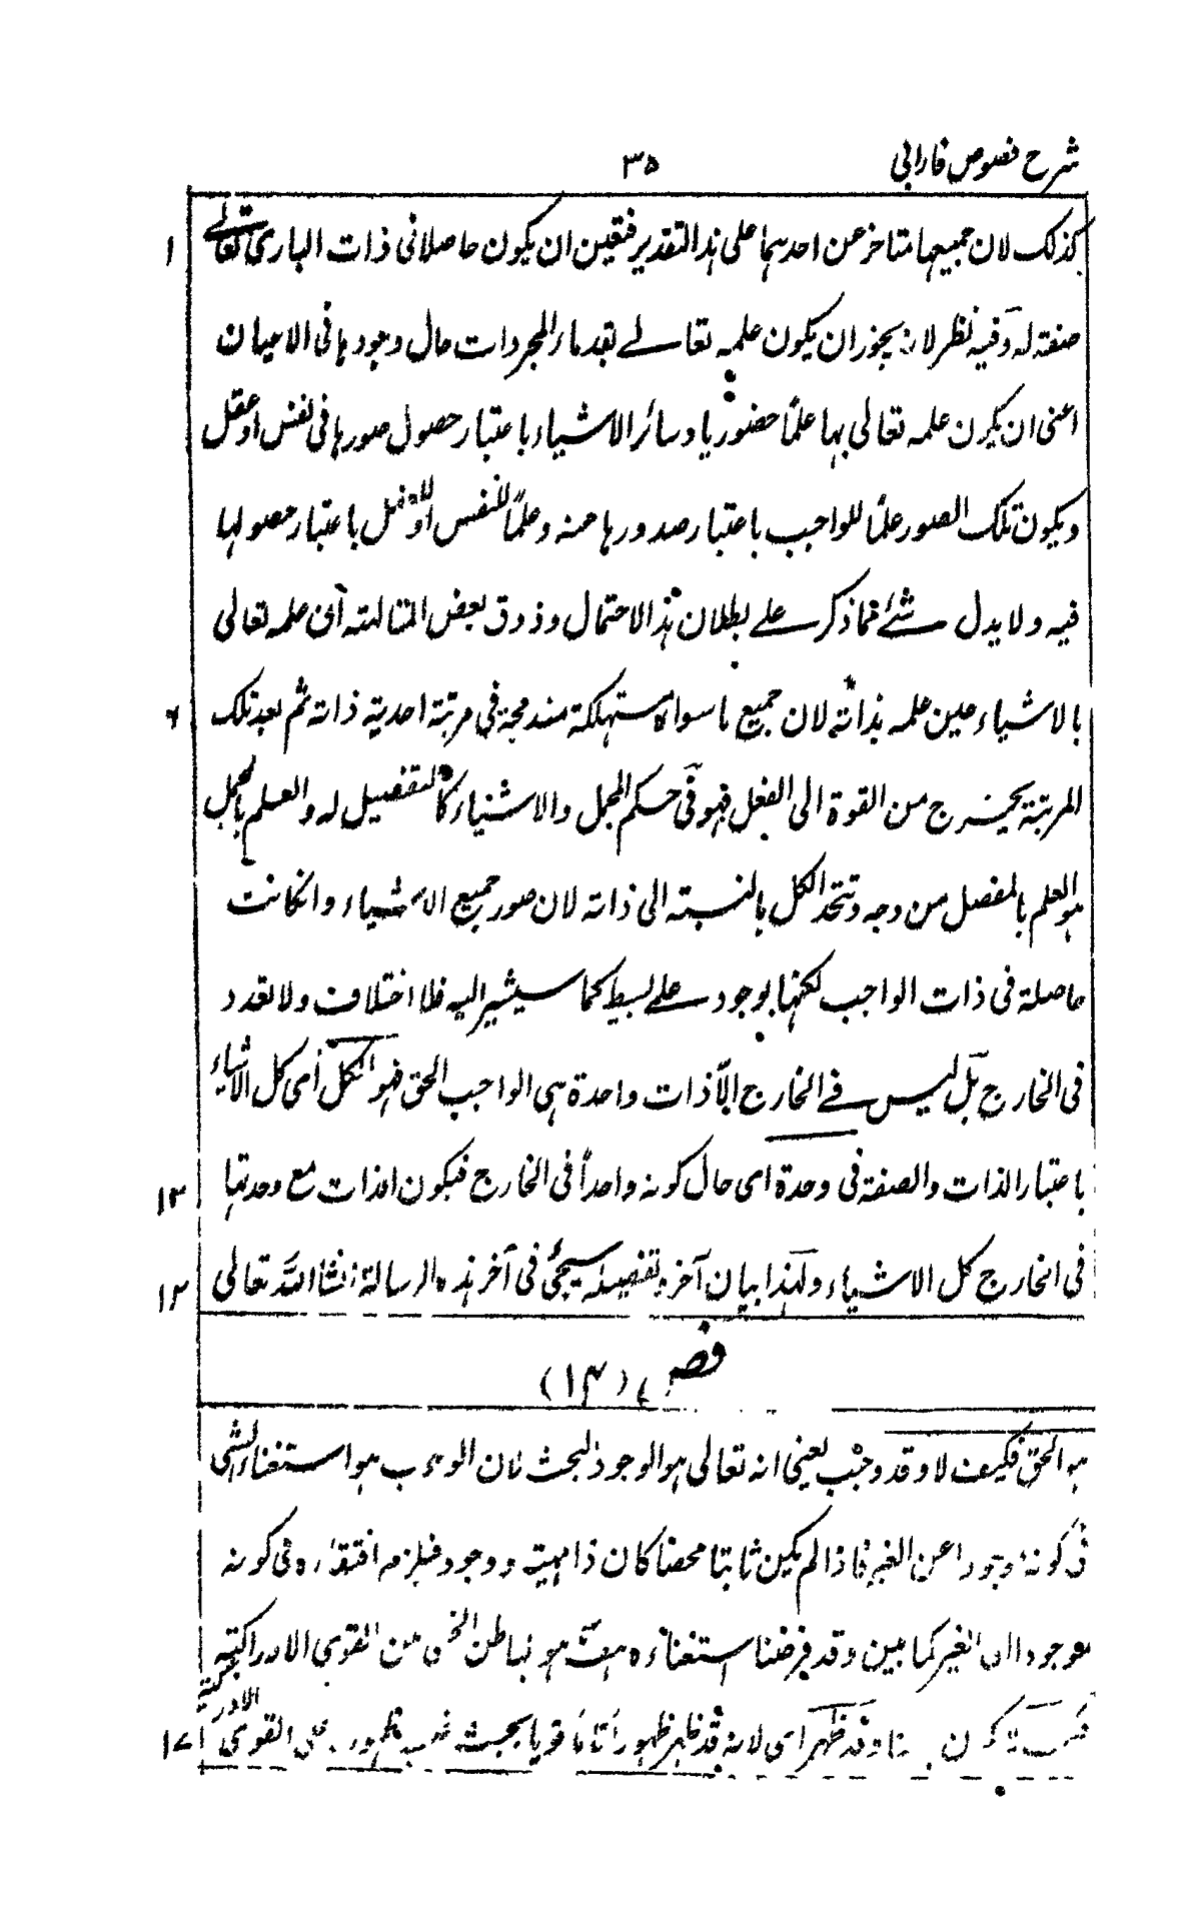 شرح فصوص فارابی ۳۵
کذلک لان جمیعہا متاخر عن احدہما علی ہذا التقدیر فتعین ان یکون حاصلا فی ذات الباری تعالے ۱
صفتہ لہ وفیہ نظر لانہ یجوز ان یکون علمہ تعالے بقدماء المجردات حال وجودہا فی الاعیان
اعنی ان یکون علمہ تعالی بہا علمًا حضوریا وسائر الاشیاء باعتبار حصول صورہا فی نفس او عقل
ویکون تلک الصور علمًا للواجب باعتبار صدورہا عنہ وعلمًا للنفس او للعقل باعتبار حصولہا
فیہ ولا یدل شئے مما ذکر علے بطلان ہذا الاحتمال وذوق بعض المتالہتہ ان علمہ تعالی
بالاشیاء عین علمہ بذاتہ لان جمیع ماسواہ مستہلکۃ مندمجۃ فی مرتبۃ احدیتہ ذاتہ ثم بعد تلک ۶
المرتبۃ یخرج من القوۃ الی الفعل فہو فی حکم المجمل والاشیاء کالتفصیل لہ والعلم بالمجمل
ہو العلم بالمفصل من وجہ وتتحد الکل بالنسبتہ الی ذاتہ لان صور جمیع الاشیاء وانکانت
حاصلۃ فی ذات الواجب لکنہا بوجود علے بسیط کما سیشیر الیہ فلا اختلاف ولا تعدد
فی الخارج بل لیس فے الخارج الّا ذات واحدۃ ہی الواجب الحق فہو الکل أی کل الاشیاء
باعتبار الذات والصفتہ فی وحدۃ ای حال کونہ واحدًا فی الخارج فیکون الذات مع وحدتہا ۱۲
فی الخارج کل الاشیاء ولہذا بیان آخر وتفصیلہ سیجئ فی آخر ہذہ الرسالۃ انشاء اللہ تعالی ۱۳
فص (۱۳)
ہو الحق فکیف لا وقد وجب یعنی انہ تعالی ہو الوجود البحت لان الوجوب ہو استغناء الشی
فی کونہ موجودا عن الغیر فاذا لم یکن ثابتا محضا کان ذا مہیۃ ووجود فیلزم افتقارہ فی کونہ
موجودا الی الغیر کما بین وقد فرضنا استغناءہ ہف ہو الباطن الخفی من القوی الادراکیۃ
فکیف لا یکون باطنا وقد ظہر ای لانہ قد ظہر ظہورًا تامًا قویا بحیث غلب ظہورہ علی القوی الادراکیۃ ۱۷